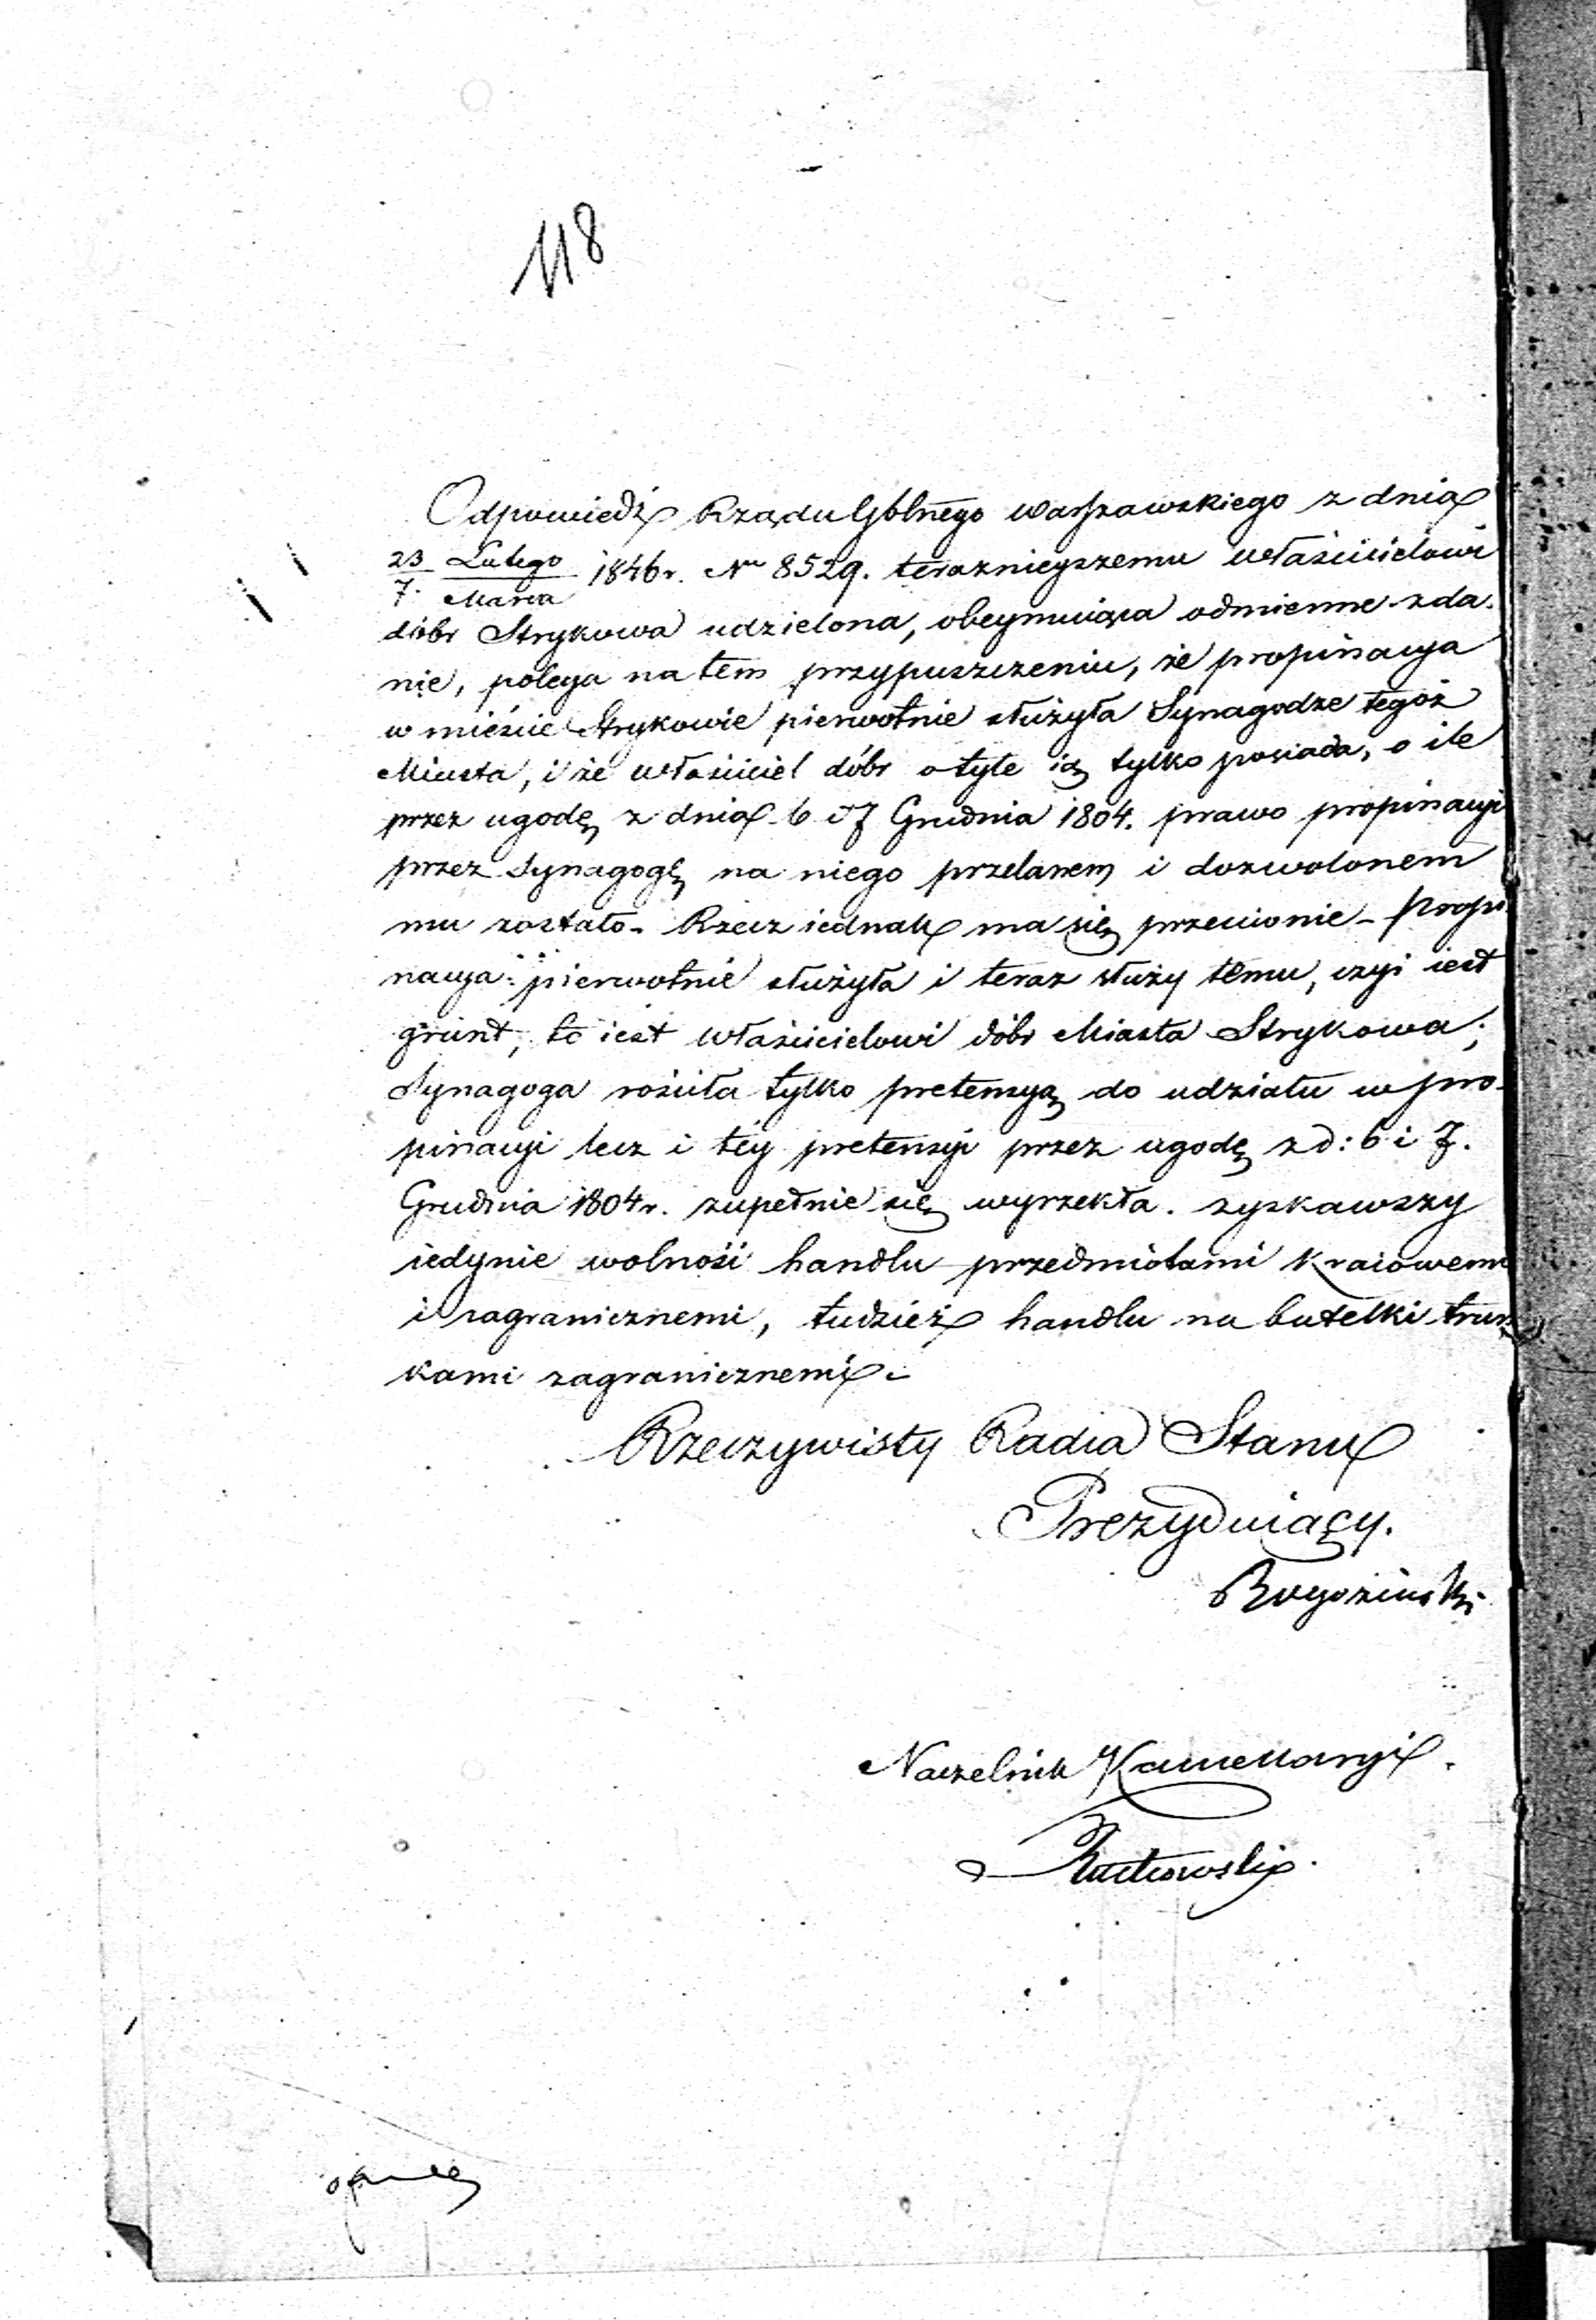 118
Odpowiedź Rządu Gblnego Warszawskiego z dnia
23 Lutego / 7. Marca 1846 r. Nr 8529. teraznieyszemu właścicielowi
dóbr Strykowa udzielona, obeymuiąca odmienne zda-
nie, polega na tem przypuszczeniu, że propinacya
w mieście Strykowie pierwotnie służyła Synagodze tegoż
Miasta, i że właściciel dóbr o tyle ią tylko posiada, o ile
przez ugodę z dnia 6 i 7 Grudnia 1804. prawo propinacyi
przez Synagogę na niego przelanem i dozwolonem
mu zostało. Rzecz iednak ma się przeciwnie - Propi
nacya pierwotnie służyła i teraz służy temu, czyi iest
grunt, to iest właścicielowi dóbr Miasta Strykowa;
Synagoga rościła tylko pretensyą do udziału w pro-
pinacyi lecz i téy pretensyi przez ugodę z d: 6 i 7.
Grudnia 1804 r. zupełnie się wyrzekła. zyskawszy
iedynie wolność handlu przedmiotami kraiowemi
i zagranicznemi, tudzież handlu na butelki trun
kami zagranicznemi.
Rzeczywisty Radca Stanu
Prezyduiący.
Rogoziński
Naczelnik Kancellaryi.